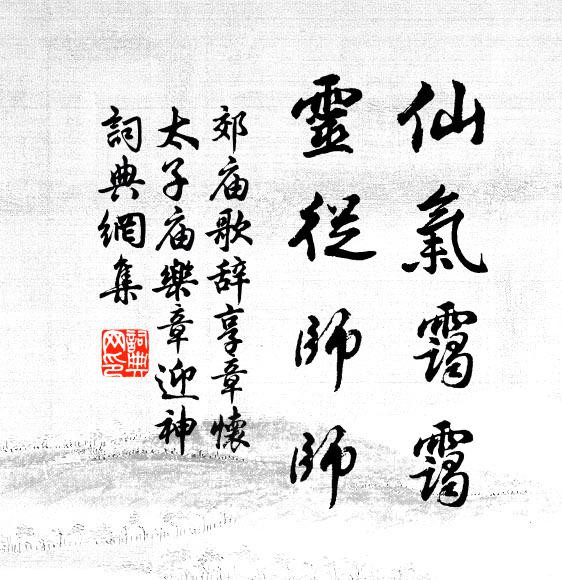 仙氣靄靄
靈從師師
郊庙歌辞享章懷
太子庙樂章迎神
詞典網集
詞典
网印